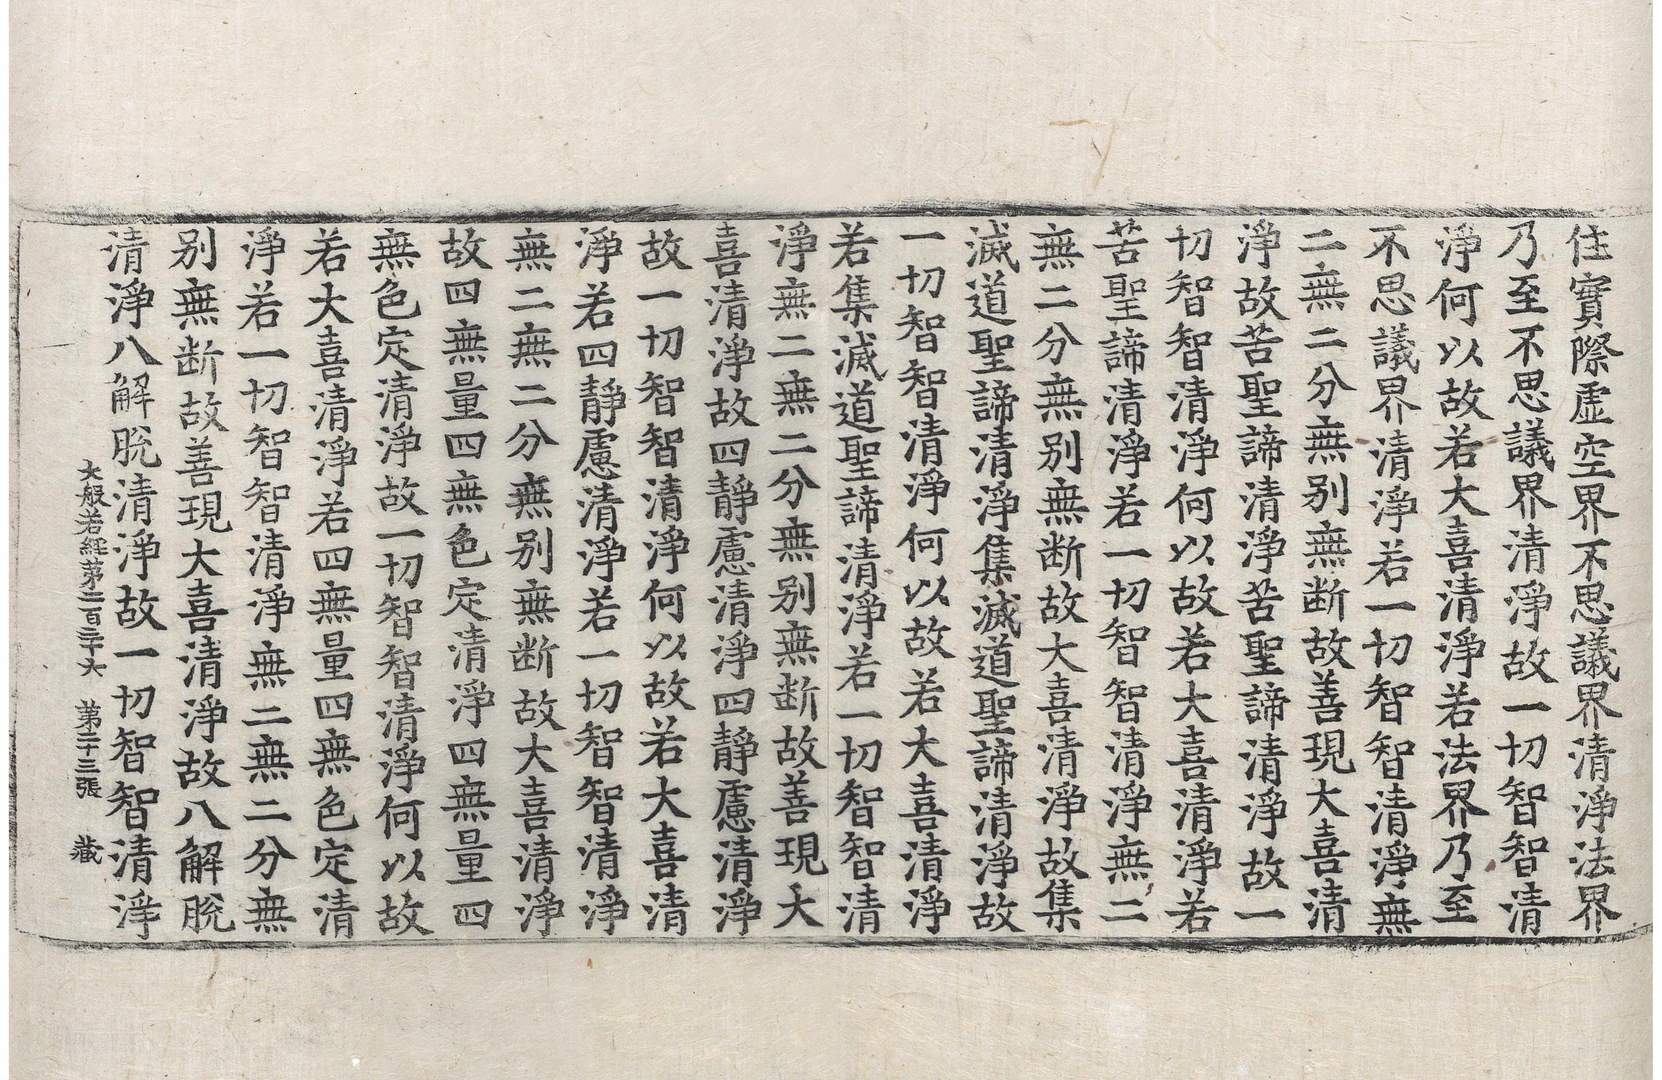 住實際虛空界不思議界清淨法界
乃至不思議界清淨故一切智智清
淨何以故若大喜清淨若法界乃至
不思議界清淨若一切智智清淨無
二無二分無别無断故善現大喜清
淨故苦聖諦清淨苦聖諦清淨故一
切智智清淨何以故若大喜清淨若
苦聖諦清淨若一切智智清淨無二
無二分無别無断故大喜清淨故集
滅道聖諦清淨集滅道聖諦清淨故
一切智智清淨何以故若大喜清淨
若集滅道聖諦清淨若一切智智清
淨無二無二分無别無断故善現大
喜清淨故四靜慮清淨四靜慮清淨
故一切智智清淨何以故若大喜清
淨若四靜慮清淨若一切智智清淨
無二無二分無别無断故大喜清淨
故四無量四無色定清淨四無量四
無色定清淨故一切智智清淨何以故
若大喜清淨若四無量四無色定清
淨若一切智智清淨無二無二分無
别無断故善現大喜清淨故八解脫
清淨八解脫清淨故一切智智清淨
大般若經第二百三十六 第二十三張 藏